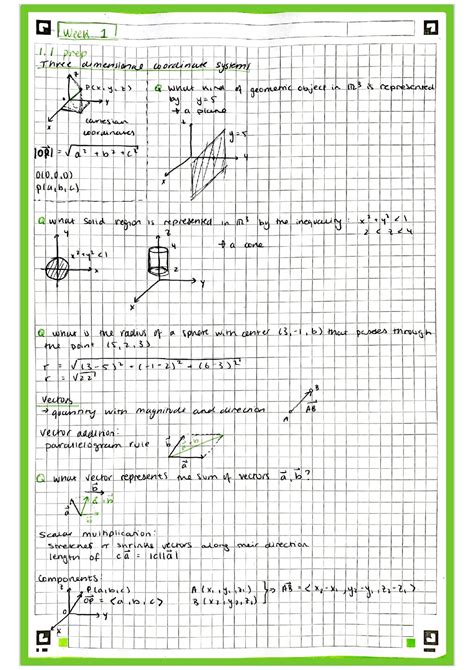 Week 1
1.1 prep
Three dimensional coordinate systems
z
P(x, y, z)
y
x
cartesian
coordinates
|OP| = √a² + b² + c²
O(0,0,0)
P(a,b,c)
Q what kind of geometric object in R³ is represented
by y = 5
→ a plane
z
y=5
y
x
Q what solid region is represented in R³ by the inequality: x² + y² < 1
2 < z < 4
→ a cone
y
x² + y² < 1
x
z
4
2
y
x
Q what is the radius of a sphere with center (3,-1,6) that passes through
the point (5,2,3)
r = √(3-5)² + (-1-2)² + (6-3)²
r = √22
Vectors
→ quantity with magnitude and direction
A
B
AB
Vector addition:
parallelogram rule
b
a
Q what vector represents the sum of vectors a, b?
b
a
Scalar multiplication:
stretches or shrinks vectors along their direction
length of ca = |c||a|
Components:
z
P(a,b,c)
OP = <a,b,c>
O
y
x
A(x₁,y₁,z₁)
B(x₂,y₂,z₂)
→ AB = <x₂-x₁, y₂-y₁, z₂-z₁>